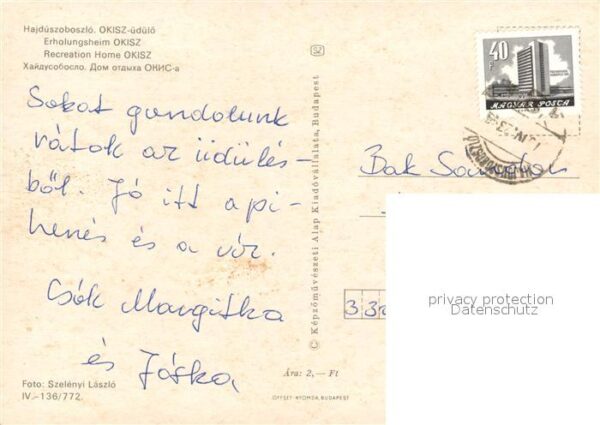 Hajdúszoboszló. OKISZ-üdülő
Erholungsheim OKISZ
Recreation Home OKISZ
Хайдусобосло. Дом отдыха ОКИС-а
Sokat gondolunk
rátok az üdülés-
ből. Jó itt a pi-
henés és a víz.
Csók Margitka
és Jóska
Foto: Szelényi László
IV.–136/772.
© Képzőművészeti Alap Kiadóvállalata, Budapest
Ára: 2,— Ft
OFFSET NYOMDA, BUDAPEST
40 f
MAGYAR POSTA
Bak Sándor
33
privacy protection
Datenschutz